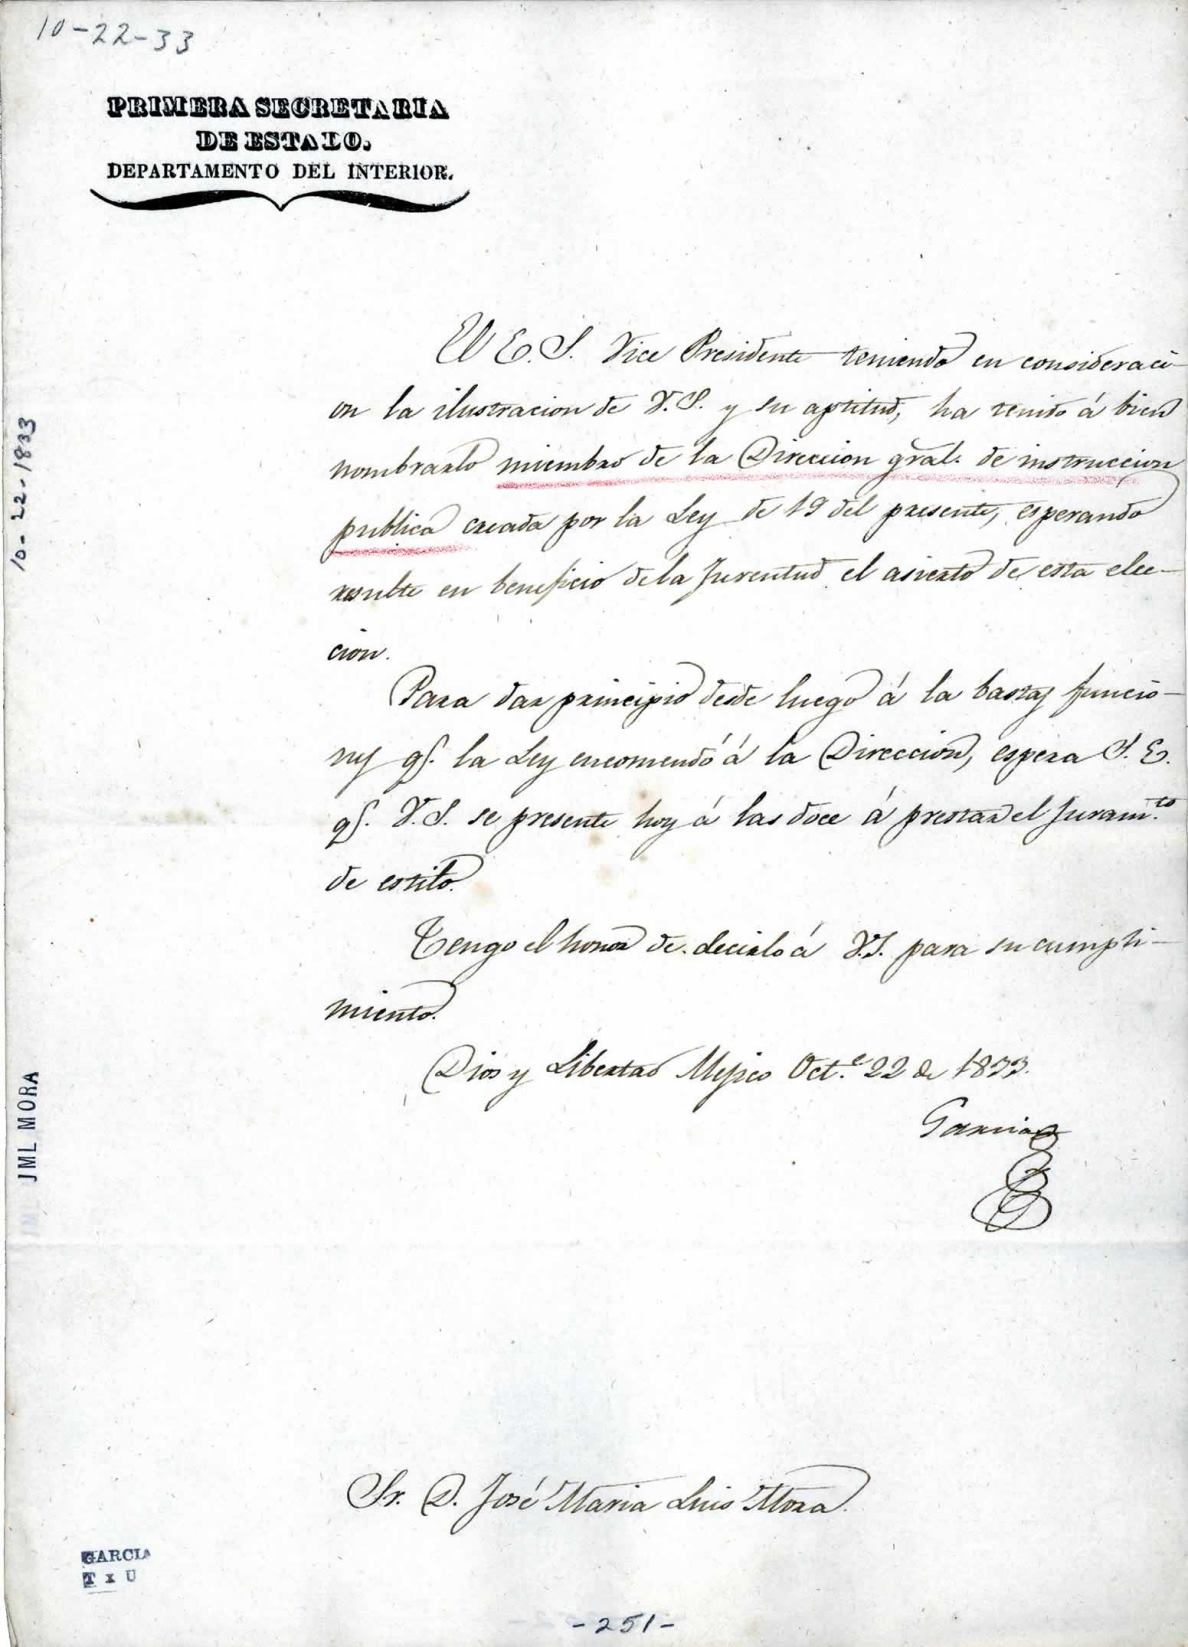 10-22-33
PRIMERA SECRETARIA
DE ESTADO.
DEPARTAMENTO DEL INTERIOR.
El E. S. Vice Presidente teniendo en consideraci-
on la ilustracion de V.S. y su aptitud, ha tenido á bien
nombrarlo miembro de la Direccion gral. de instruccion
publica creada por la Ley de 19 del presente, esperando
resulte en beneficio de la Juventud el asierto de esta elec-
cion.
Para dar principio desde luego á la bastas funcio-
nes qe. la Ley encomendó á la Direccion, espera S. E.
qe. V.S. se presente hoy á las doce á prestar el Juram.to
de estilo.
Tengo el honor de decirlo á V.S. para su cumpli-
miento.
Dios y Libertad Mejico Oct.e 22 de 1833.
Garcia
Sr. D. José Maria Luis Mora.
10-22-1833
JML MORA
GARCIA
T x U
-251-